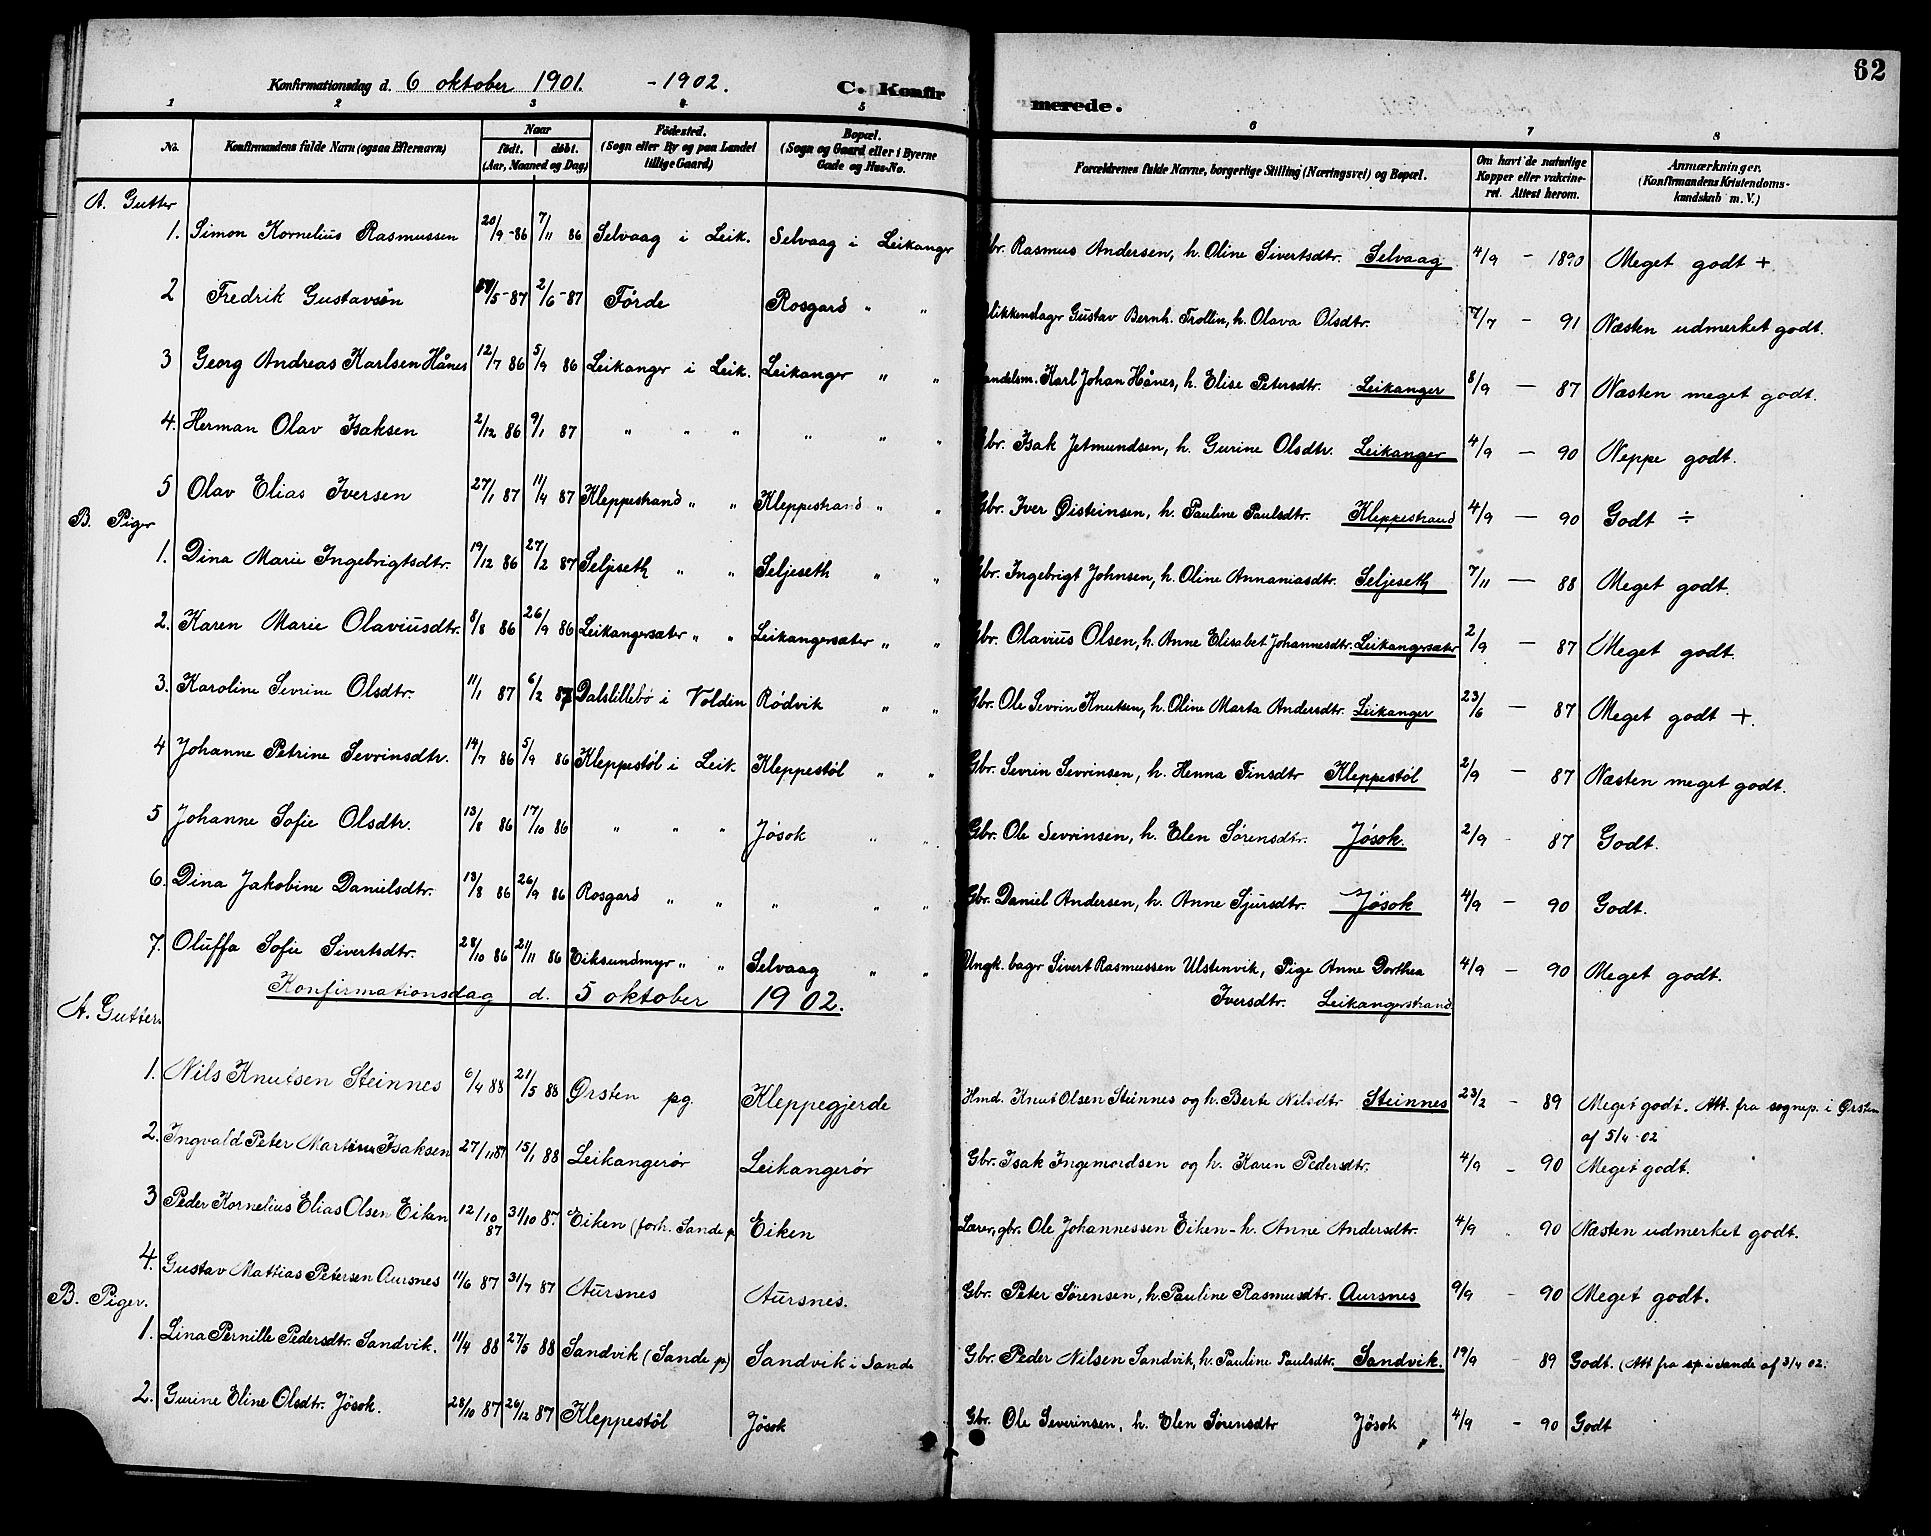 62
Konfirmationsdag d. 6 oktober 1901. - 1902. C. Konfirmerede.
1 2 3 4 5 6 7 8
No. Konfirmandens fulde Navn (ogsaa Efternavn) Naar født. døbt. (Aar, Maaned og Dag) Fødested. (Sogn eller By og paa Landet tillige Gaard) Bopæl. (Sogn og Gaard eller i Byerne Gade og Hus-No. Forældrenes fulde Navne, borgerlige Stilling (Næringsvei) og Bopæl. Om havt de naturlige Kopper eller vakcineret. Attest herom. Anmærkninger. (Konfirmandens Kristendomskundskab m. V.)
A. Gutter
1. Simon Kornelius Rasmussen 20/9-86 7/11 86 Selvaag i Leik. Selvaag i Leikanger Gbr. Rasmus Andersen, h. Oline Sivertsdtr. Selvaag 4/9 - 1890 Meget godt +
2 Fredrik Gustavsen /5-87 2/6-87 Førde Rosgard " " Blikkenslagr Gustav Bernh. Trollin, h. Olava Olsdtr. 7/7 - 91 Næsten udmerket godt.
3 Georg Andreas Karlsen Hånes 12/7 86 5/9 86 Leikanger i Leik. Leikanger " " Handelsm. Karl Johan Hånes, h. Elise Petersdtr. Leikanger 8/9 - 87 Næsten meget godt.
4. Herman Olav Isaksen 2/12 86 9/1 87 " " " " " " Gbr. Isak Jetmundsen, h. Gurine Olsdtr. Leikanger 4/9 - 90 Neppe godt.
5 Olav Elias Iversen 27/1 87 11/4 87 Kleppestrand " " Kleppestrand " " Gbr. Iver Øisteinsen, h. Pauline Paulsdtr. Kleppestrand 4/9 - 90 Godt ÷
B. Piger
1. Dina Marie Ingebrigtsdtr. 19/12 86 27/2 87 Seljeseth " " Seljeseth " " Gbr. Ingebrigt Johnsen, h. Oline Annaniasdtr. Seljeseth 7/11 - 88 Meget godt.
2. Karen Marie Olaviusdtr. 8/8 86 26/9 86 Leikangersæter " " Leikangersæter " " Gbr. Olavius Olsen, h. Anne Elisabet Johannesdtr. Leikangersæter 2/9 - 87 Meget godt.
3. Karoline Sevrine Olsdtr. 11/1 87 6/2 87 Dalslillebø i Volden Rødvik " " Gbr. Ole Sevrin Knutsen, h. Oline Marta Andersdtr. Leikanger 23/6 - 87 Meget godt +.
4 Johanne Petrine Sevrinsdtr. 14/7 86 5/9 86 Kleppestøl i Leik. Kleppestøl " " Gbr. Sevrin Sevrinsen, h. Henna Finsdtr Kleppestøl 2/9 - 87 Næsten meget godt.
5 Johanne Sofie Olsdtr. 13/8 86 17/10 86 " " " Jøsok " " Gbr. Ole Sevrinsen, h. Elen Sørensdtr. Jøsok. 2/9 - 87 Godt.
6. Dina Jakobine Danielsdtr. 13/8 86 26/9 86 Rosgard " " " " " Gbr. Daniel Andersen, h. Anne Sjursdtr. Jøsok 4/9 - 90 Godt.
7. Oluffa Sofie Sivertsdtr. 28/10 86 21/11 86 Eiksundmyr " " Selvaag " " Ungk. bagr Sivert Rasmussen Ulstenvik, Pige Anne Dorthea 4/9 - 90 Meget godt.
Iversdtr. Leikangerstrand
Konfirmationsdag d. 5 oktober 1902.
A. Gutter.
1. Nils Knutsen Steinnes 6/4 88 21/5 88 Ørsten pg. Kleppegjerde Hmd. Knut Olsen Steinnes og h. Berte Nilsdtr Steinnes 23/2 - 89 Meget godt. Att. fra sognep. i Ørsten
af 5/4-02
2. Ingvald Peter Martinus Isaksen 27/11 87 15/1 88 Leikangerør Leikangerør Gbr. Isak Ingemordsen og h. Karen Pedersdtr. 4/9 - 90 Meget godt.
3 Peder Kornelius Elias Olsen Eiken 12/10 87 31/10 87. Eiken (forh. Sande p Eiken Lærer, gbr. Ole Johannessen Eiken - h. Anne Andersdtr. 4/9 . 90 Næsten udmerket godt.
4. Gustav Mattias Petersen Aursnes 11/6 87 31/7 87 Aursnes Aursnes. Gbr. Peter Sørensen, h. Pauline Rasmusdtr. Aursnes 9/9 - 90 Meget godt.
B. Piger.
1. Lina Pernille Pedersdtr. Sandvik. 11/4 88 27/5 88 Sandvik (Sande p) Sandvik i Sande Gbr. Peder Nilsen Sandvik, h. Pauline Paulsdtr. Sandvik. 19/9 - 89 Godt. (Att fra sp. i Sande af 3/4 02.
2. Gurine Eline Olsdtr. Jøsok. 28/10 87 26/12 87 Kleppestøl Jøsok Gbr. Ole Severinsen, h. Elen Sørensdtr Jøsok 4/9 - 90 Godt